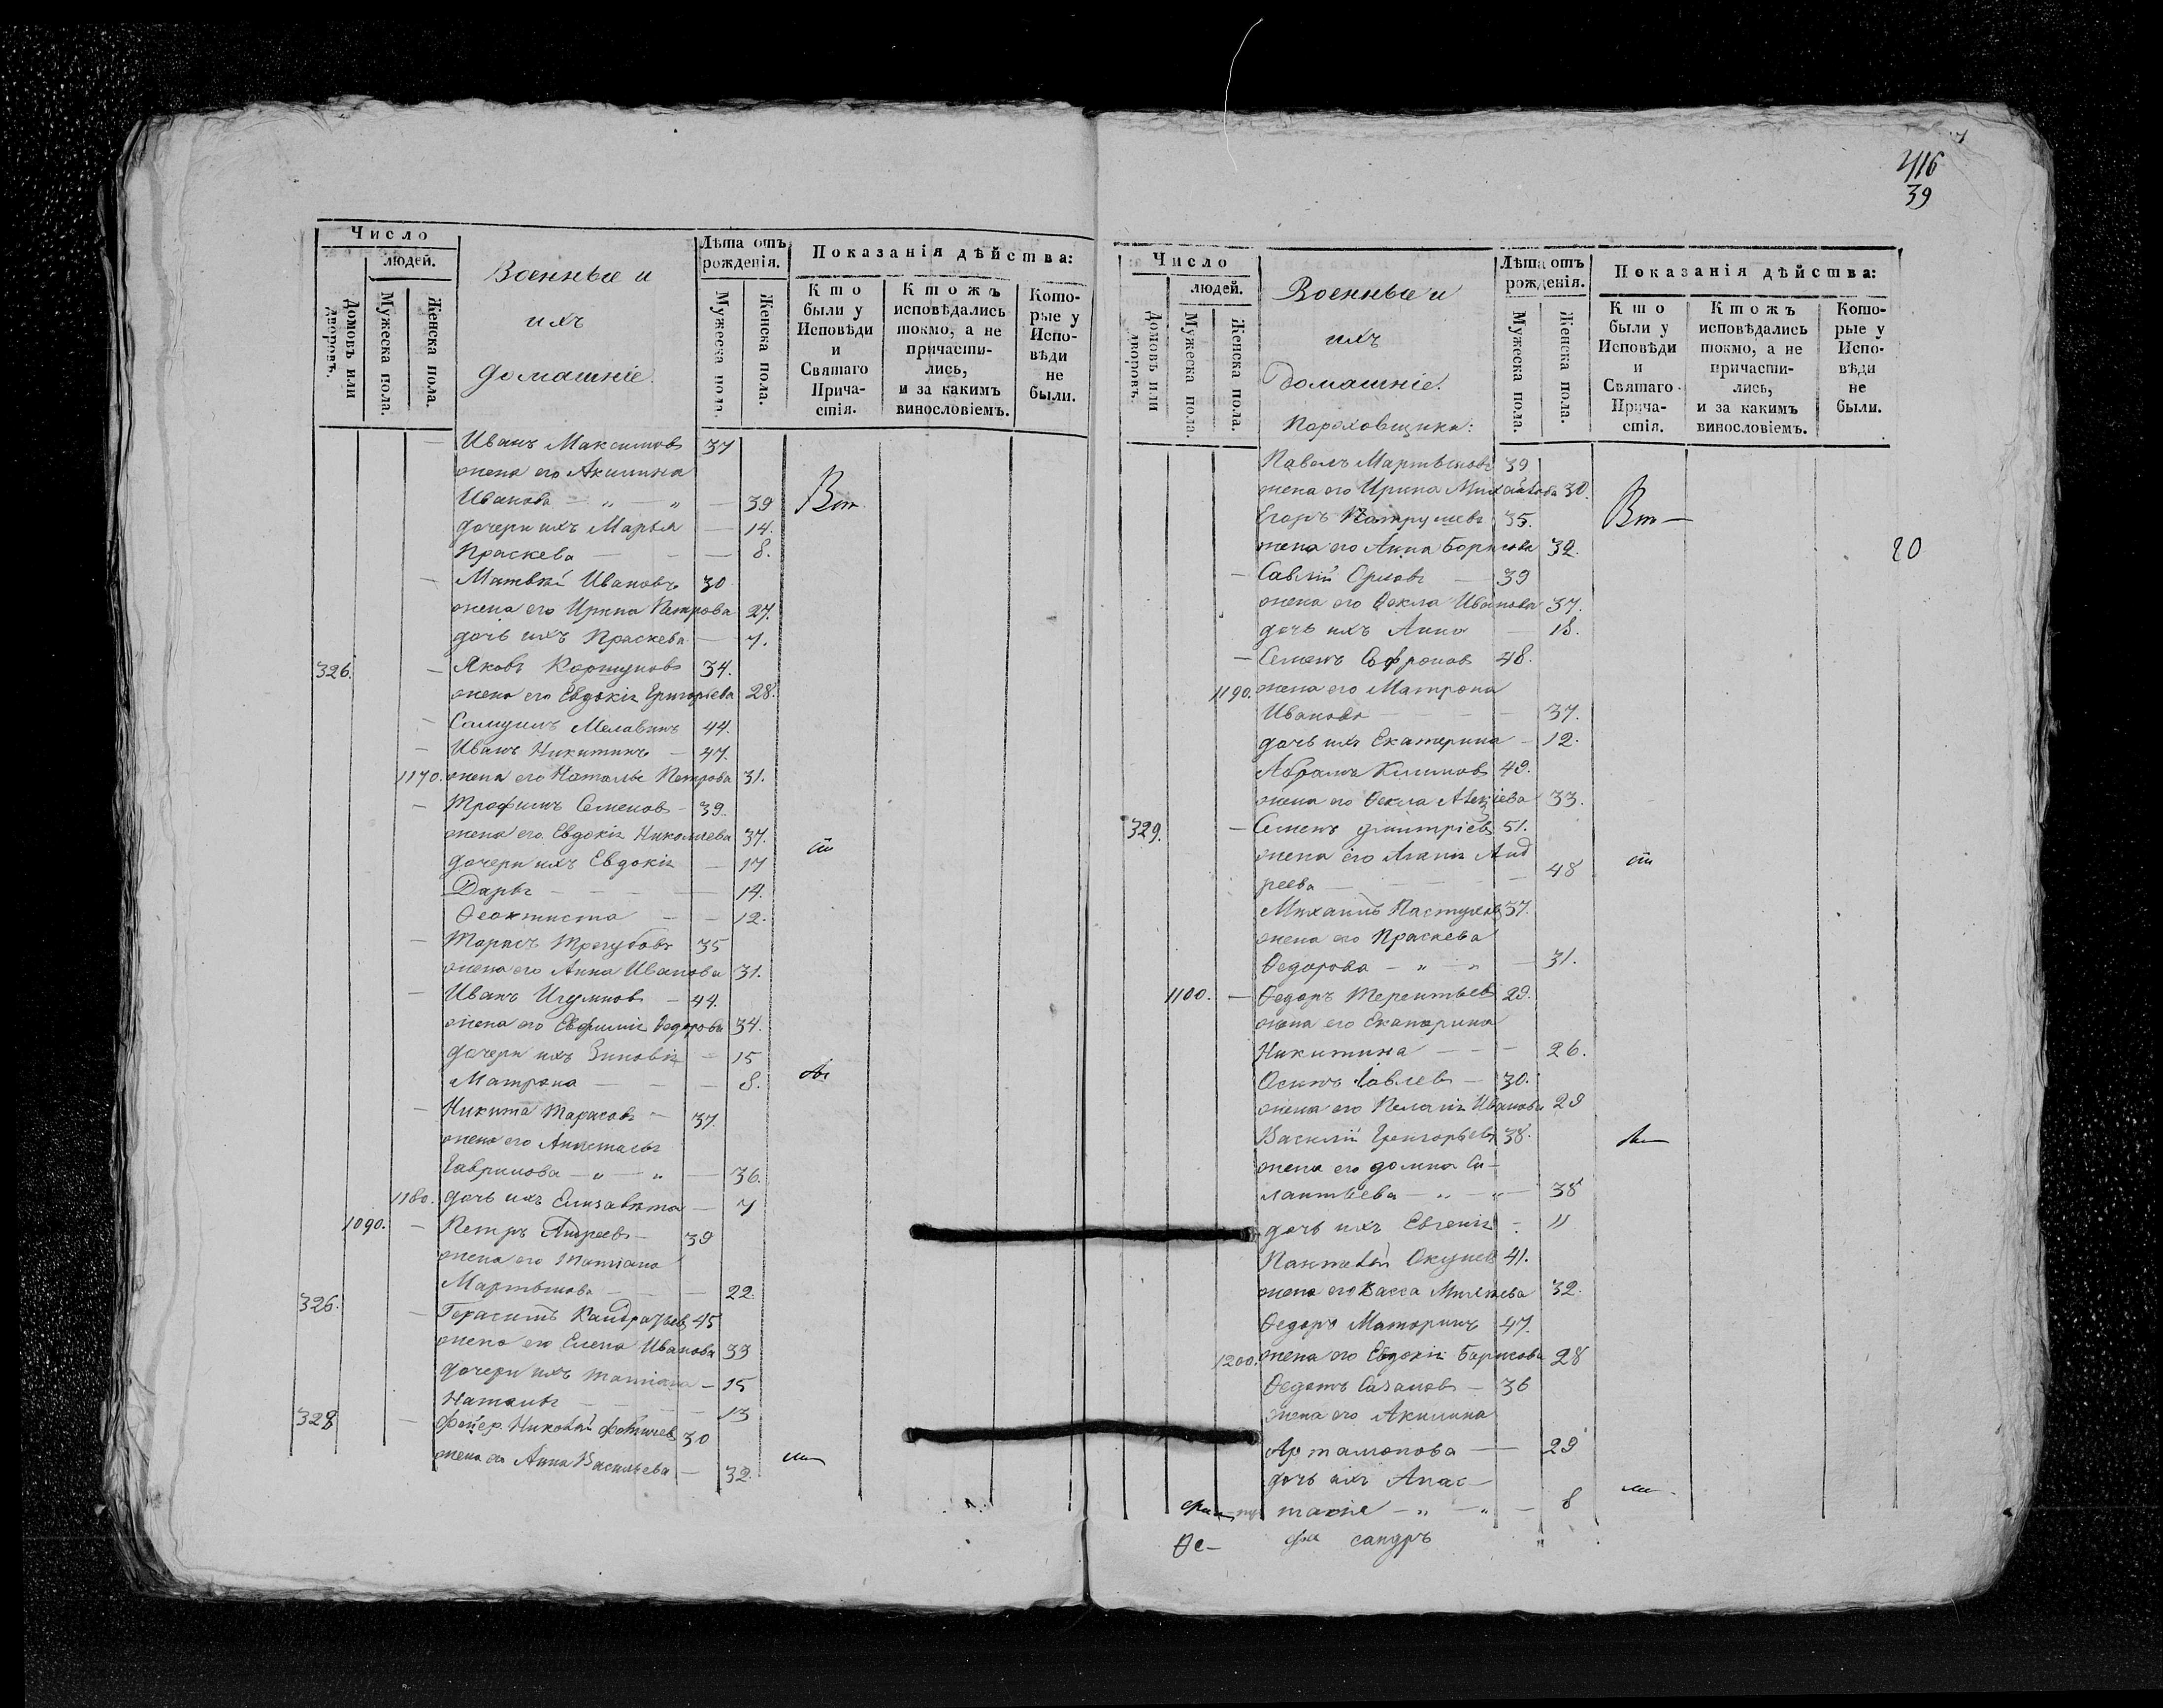 Число
людей.
Домовъ или дворовъ.
Мужеска пола.
Женска пола.
Военные и
ихъ
домашніе.
Лѣта отъ рожденія.
Мужеска пола.
Женска пола.
Показанія дѣйства:
Кто были у Исповѣди и Святаго Прича-стія.
Ктожъ исповѣдались токмо, а не причасти-лись, и за какимъ винословіемъ.
Кото-рые у Испо-вѣди не были.
— Иванъ Максимовъ 37
жена его Акилина
Иванова — „ — „ — 39
дочери ихъ Марья — 14.
Праскева — - — 8.
— Матвѣй Ивановъ 30
жена его Ирина Петрова 27.
дочь ихъ Праскева — 7.
326. — Яковъ Коршуновъ 34.
жена его Евдокія Григорьева 28.
— 44.
— Иванъ Никитинъ — 47.
1170. жена его Наталья Петрова 31.
— Трофимъ Семеновъ - 39.
жена его Евдокія Николаева 37.
дочери ихъ Евдокія — 17
Дарья — — — — 14.
Феоктиста — — 12.
— Тарасъ Трегубовъ 35
жена его Анна Иванова 31.
— Иванъ Игумновъ — 44.
жена его Евфимія Федорова 34.
дочери ихъ Зиновія — 15
Матрона — — — 8.
— Никита Тарасовъ — 37.
жена его Анастасья
Гаврилова — „ — „ — 36.
1180. дочь ихъ Елизавета — 7
1090. — Петръ Андреевъ — 39
жена его Татіана
Мартынова — — — 22.
326. — Герасимъ Кандратьевъ 45
жена его Елена Иванова 33
дочери ихъ Татіана — 15
Наталья — — — 13
328 — фейер. Николай 30
жена его Анна Васильева — 32.
416
39
Число
людей.
Домовъ или дворовъ.
Мужеска пола.
Женска пола.
Военные и
ихъ
Домашніе.
Пороховщики:
Лѣта отъ рожденія.
Мужеска пола.
Женска пола.
Показанія дѣйства:
Кто были у Исповѣди и Святаго Прича-стія.
Ктожъ исповѣдались токмо, а не причасти-лись, и за какимъ винословіемъ.
Кото-рые у Испо-вѣди не были.
Павелъ Мартыновъ 39
жена его Ирина Михайлова 30.
Егоръ Патрушевъ 35.
жена его Анна Борисова 32.
20
— Савлій Орловъ — 39
жена его Фекла Иванова 37.
дочь ихъ Анна — 18.
— Семенъ Софроновъ 48.
1190. жена его Матрона
Иванова — — — 37.
дочь ихъ Екатерина — 12.
Абрамъ Климовъ 49.
жена его Фекла Алексіева 33.
329. — Семенъ Дмитріевъ 51.
жена его Агапія Анд
реева — — — 48
Михаилъ Пастуховъ 37.
жена его Праскева
Федорова — „ — „ — 31.
1100. — Федоръ Терентьевъ 29.
жена его Екатерина
Никитина — — — 26.
Осипъ — 30.
жена его Пелагія Иванова 29
Василій Григорьевъ 38.
жена его Домна Си-
лантьева — „ — „ — 38
дочь ихъ Евгенія - 11
Пантелей Окуневъ 41.
жена его Васса 32.
Федоръ Маторинъ 47.
1200. жена его Евдокія Борисова 28
Федотъ Сазановъ — 36
жена его Акилина
Артамонова — — 29
дочь ихъ Анас-
тасія — „ — „ — 8
Фе-
сандръ